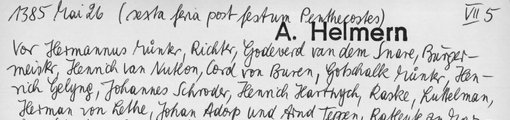 1385 Mai 26 (sexta feria post festum Penthecostes) VII 5
A. Helmern
Vor Hermannus Munter, Richter, Godeverd van dem Snare, Bürger-
meister Henrich van Nutlon, Cord von Buren, Gotschalk Munter, Hen-
rich Gelyng, Johannes Schroder, Henrich Hartwych, Raske, Luttelman,
Herman von Lethe, Johan Adorp und Arnd Teppen, Ratleute